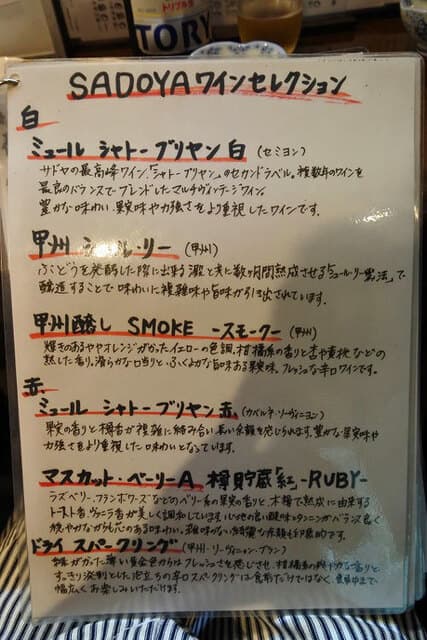 TORY
SADOYAワインセレクション
白
ミュール シャトーブリヤン 白 (セミヨン)
サドヤの最高峰ワイン、「シャトーブリヤン」のセカンドラベル。複数年のワインを
最良のバランスでブレンドしたマルチヴィンテージワイン。
豊かな味わい、果実味や力強さをより重視したワインです。
甲州 シュール・リー (甲州)
ぶどうを発酵した際に出る澱と共に数ヶ月間熟成させる「シュール・リー製法」で
醸造することで味わいに複雑味や旨味が引き出されています。
甲州醸し SMOKE -スモーク- (甲州)
輝きのあるややオレンジがかったイエローの色調。柑橘系の香りと杏や黄桃などの
熟した香り。滑らかな口当りと、ふくよかな旨味ある果実味。フレッシュな辛口ワインです。
赤
ミュール シャトーブリヤン 赤 (カベルネ・ソーヴィニヨン)
果実の香りと樽香が複雑に絡み合い長い余韻を感じられます。豊かな果実味や
力強さをより重視した味わいとなっています。
マスカット・ベーリーA 樽貯蔵「紅」-RUBY-
ラズベリー、フランボワーズなどのベリー系の果実の香りと、木樽で熟成に由来する
トースト香、ヴァニラ香が美しく調和しています。心地の良い酸味とタンニンがバランス良く
穏やかながらも芯のある味わい。雑味のない綺麗な余韻も印象的です。
ドライ スパークリング (甲州・ソーヴィニヨン・ブラン)
がかった薄い黄金色からはフレッシュさを感じさせ、柑橘系の爽やかな香りと
すっきり溌剌とした泡立ちの辛口スパークリングは食前だけではなく、食中まで
幅広くお楽しみいただけます。